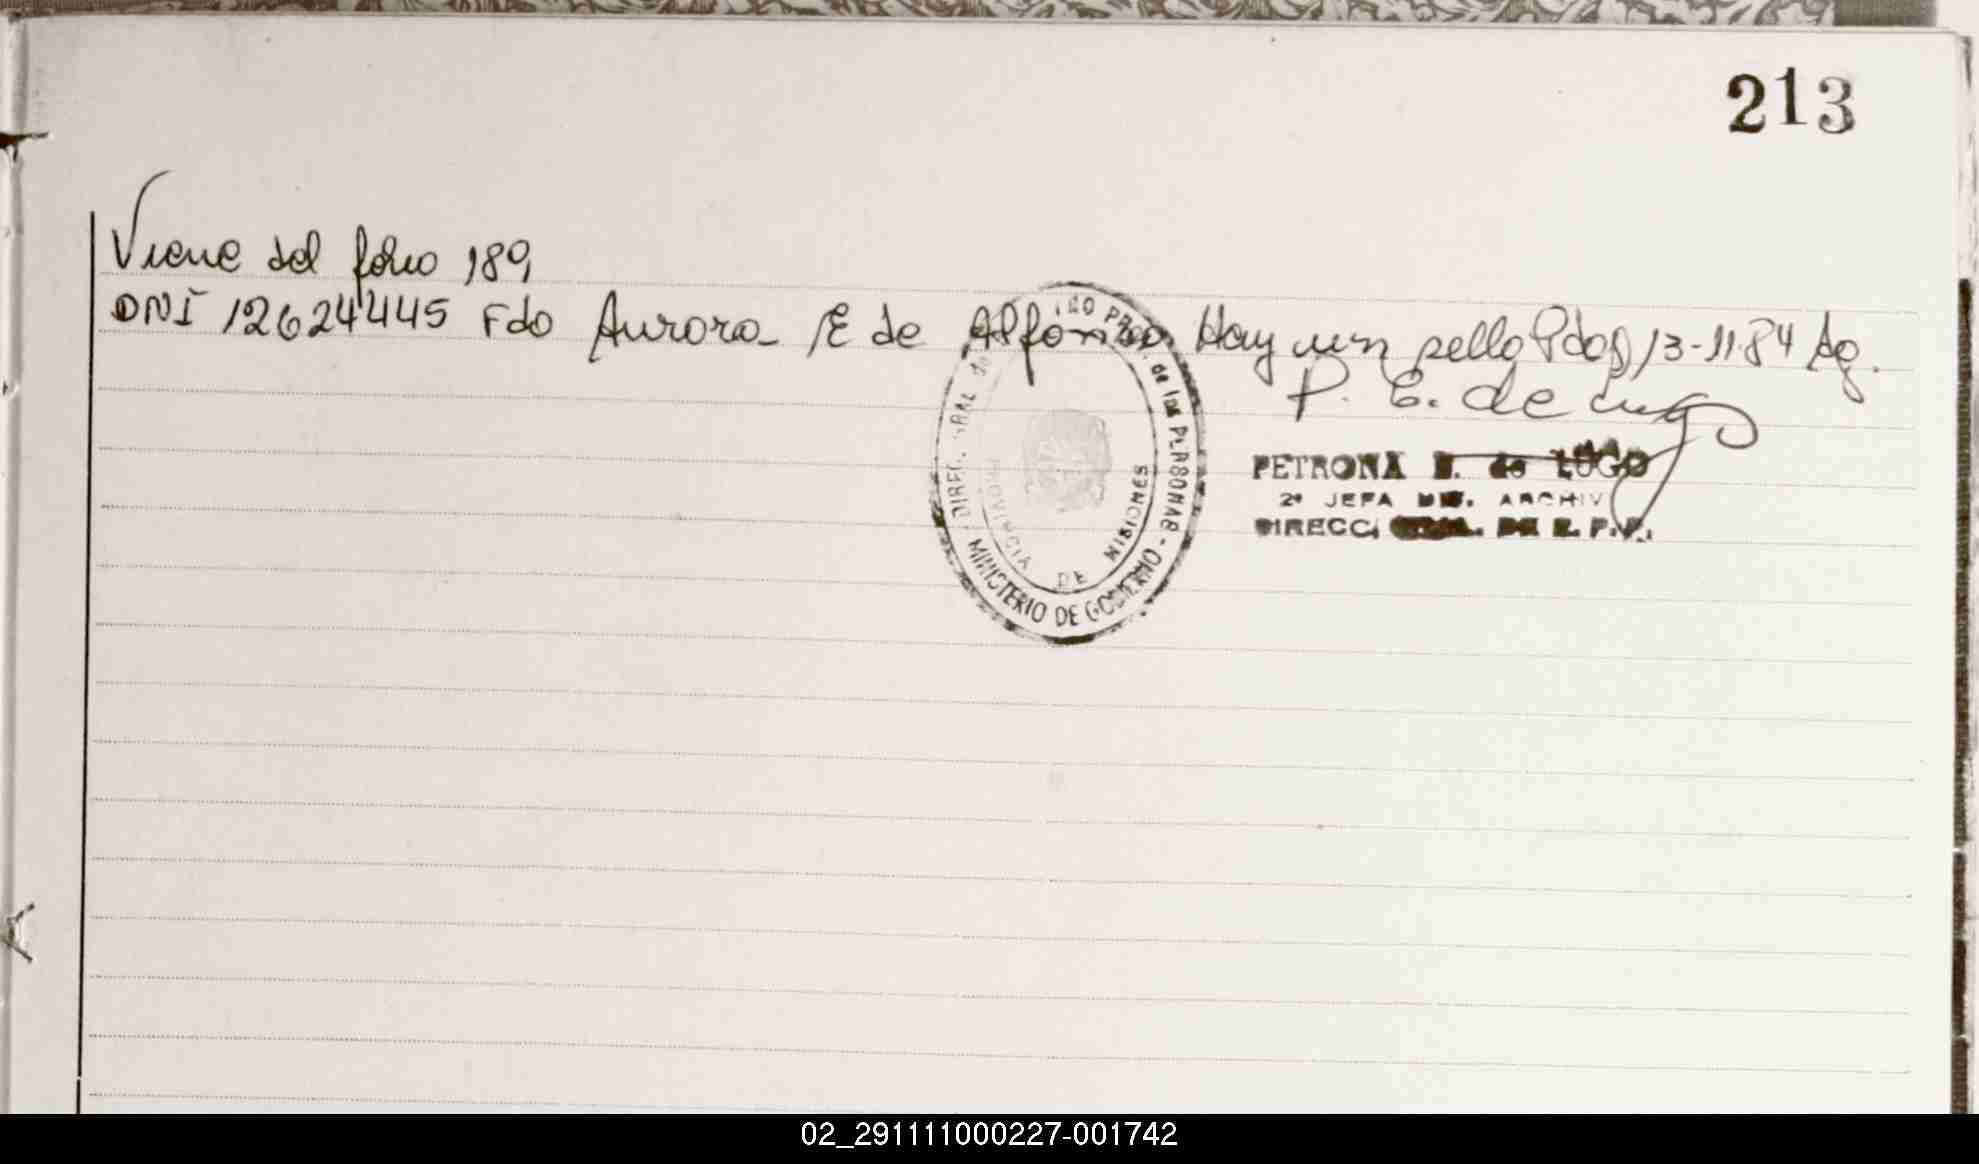 213
Viene del folio 189
DNI 12624445 Fdo Aurora E de Alfonso Hay un sello Pdas 13-11-84 Ag.
P. E. de Lugo
PETRONA E. de LUGO
2ª JEFA ARCHIV
DIRECC. GRAL. DE R. P. P.
DIREC. GRAL de de las PERSONAS -
MINISTERIO DE GOBIERNO -
PROVINCIA DE MISIONES
02_291111000227-001742